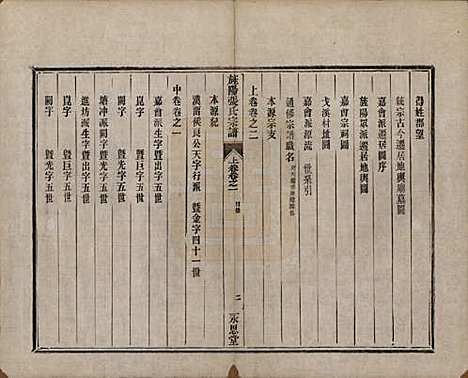 得姓郡望
旌宗古今遷居地輿廟墓圖
嘉會派遷居地輿圖序
旌陽眾派遷居地輿圖
嘉會宗祠圖
戈溪村墟圖
嘉會派源流 世系引
通修宗譜職名
上卷卷之二
本源宗支
旌陽張氏宗譜 上卷卷之一 目錄 二 永思堂
本源紀
漢留侯良公天字行派 暨金字四十一世
中卷卷之一
嘉會派生字暨出字五世
崑字 暨巨字五世
闕字 暨光字五世
塘沖派生字暨光字五世
進坊派生字暨出字五世
崑字 暨巨字五世
闕字 暨光字五世